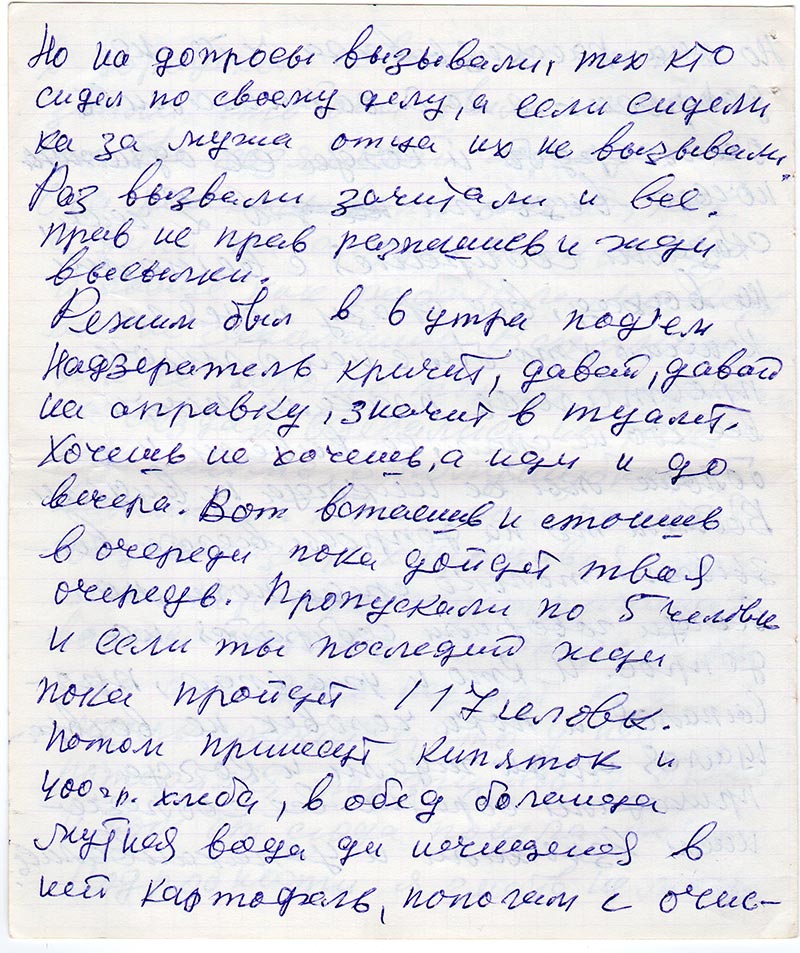 Но на допросы вызывали, тех кто
сидел по своему делу, а если сидели
ка за мужа отца их не вызывали.
Раз вызвали зачитали и все.
прав не прав распишев и жди
высылки.
Режим был в 6 утра под'ем
Надзератель кричит, давай, давай
на оправку, значит в туалет.
Хочешь не хочешь, а иди и до
вечера. Вот встаешь и стоишь
в очереди пока дойдет твоя
очередь. Пропускали по 5 человек
и если ты последний жди
пока пройдет 117 человк.
Потом принесут кипяток и
400гр. хлеба, в обед баланда
мутная вода да нечищеная в
ней картофель, пополам с очис-